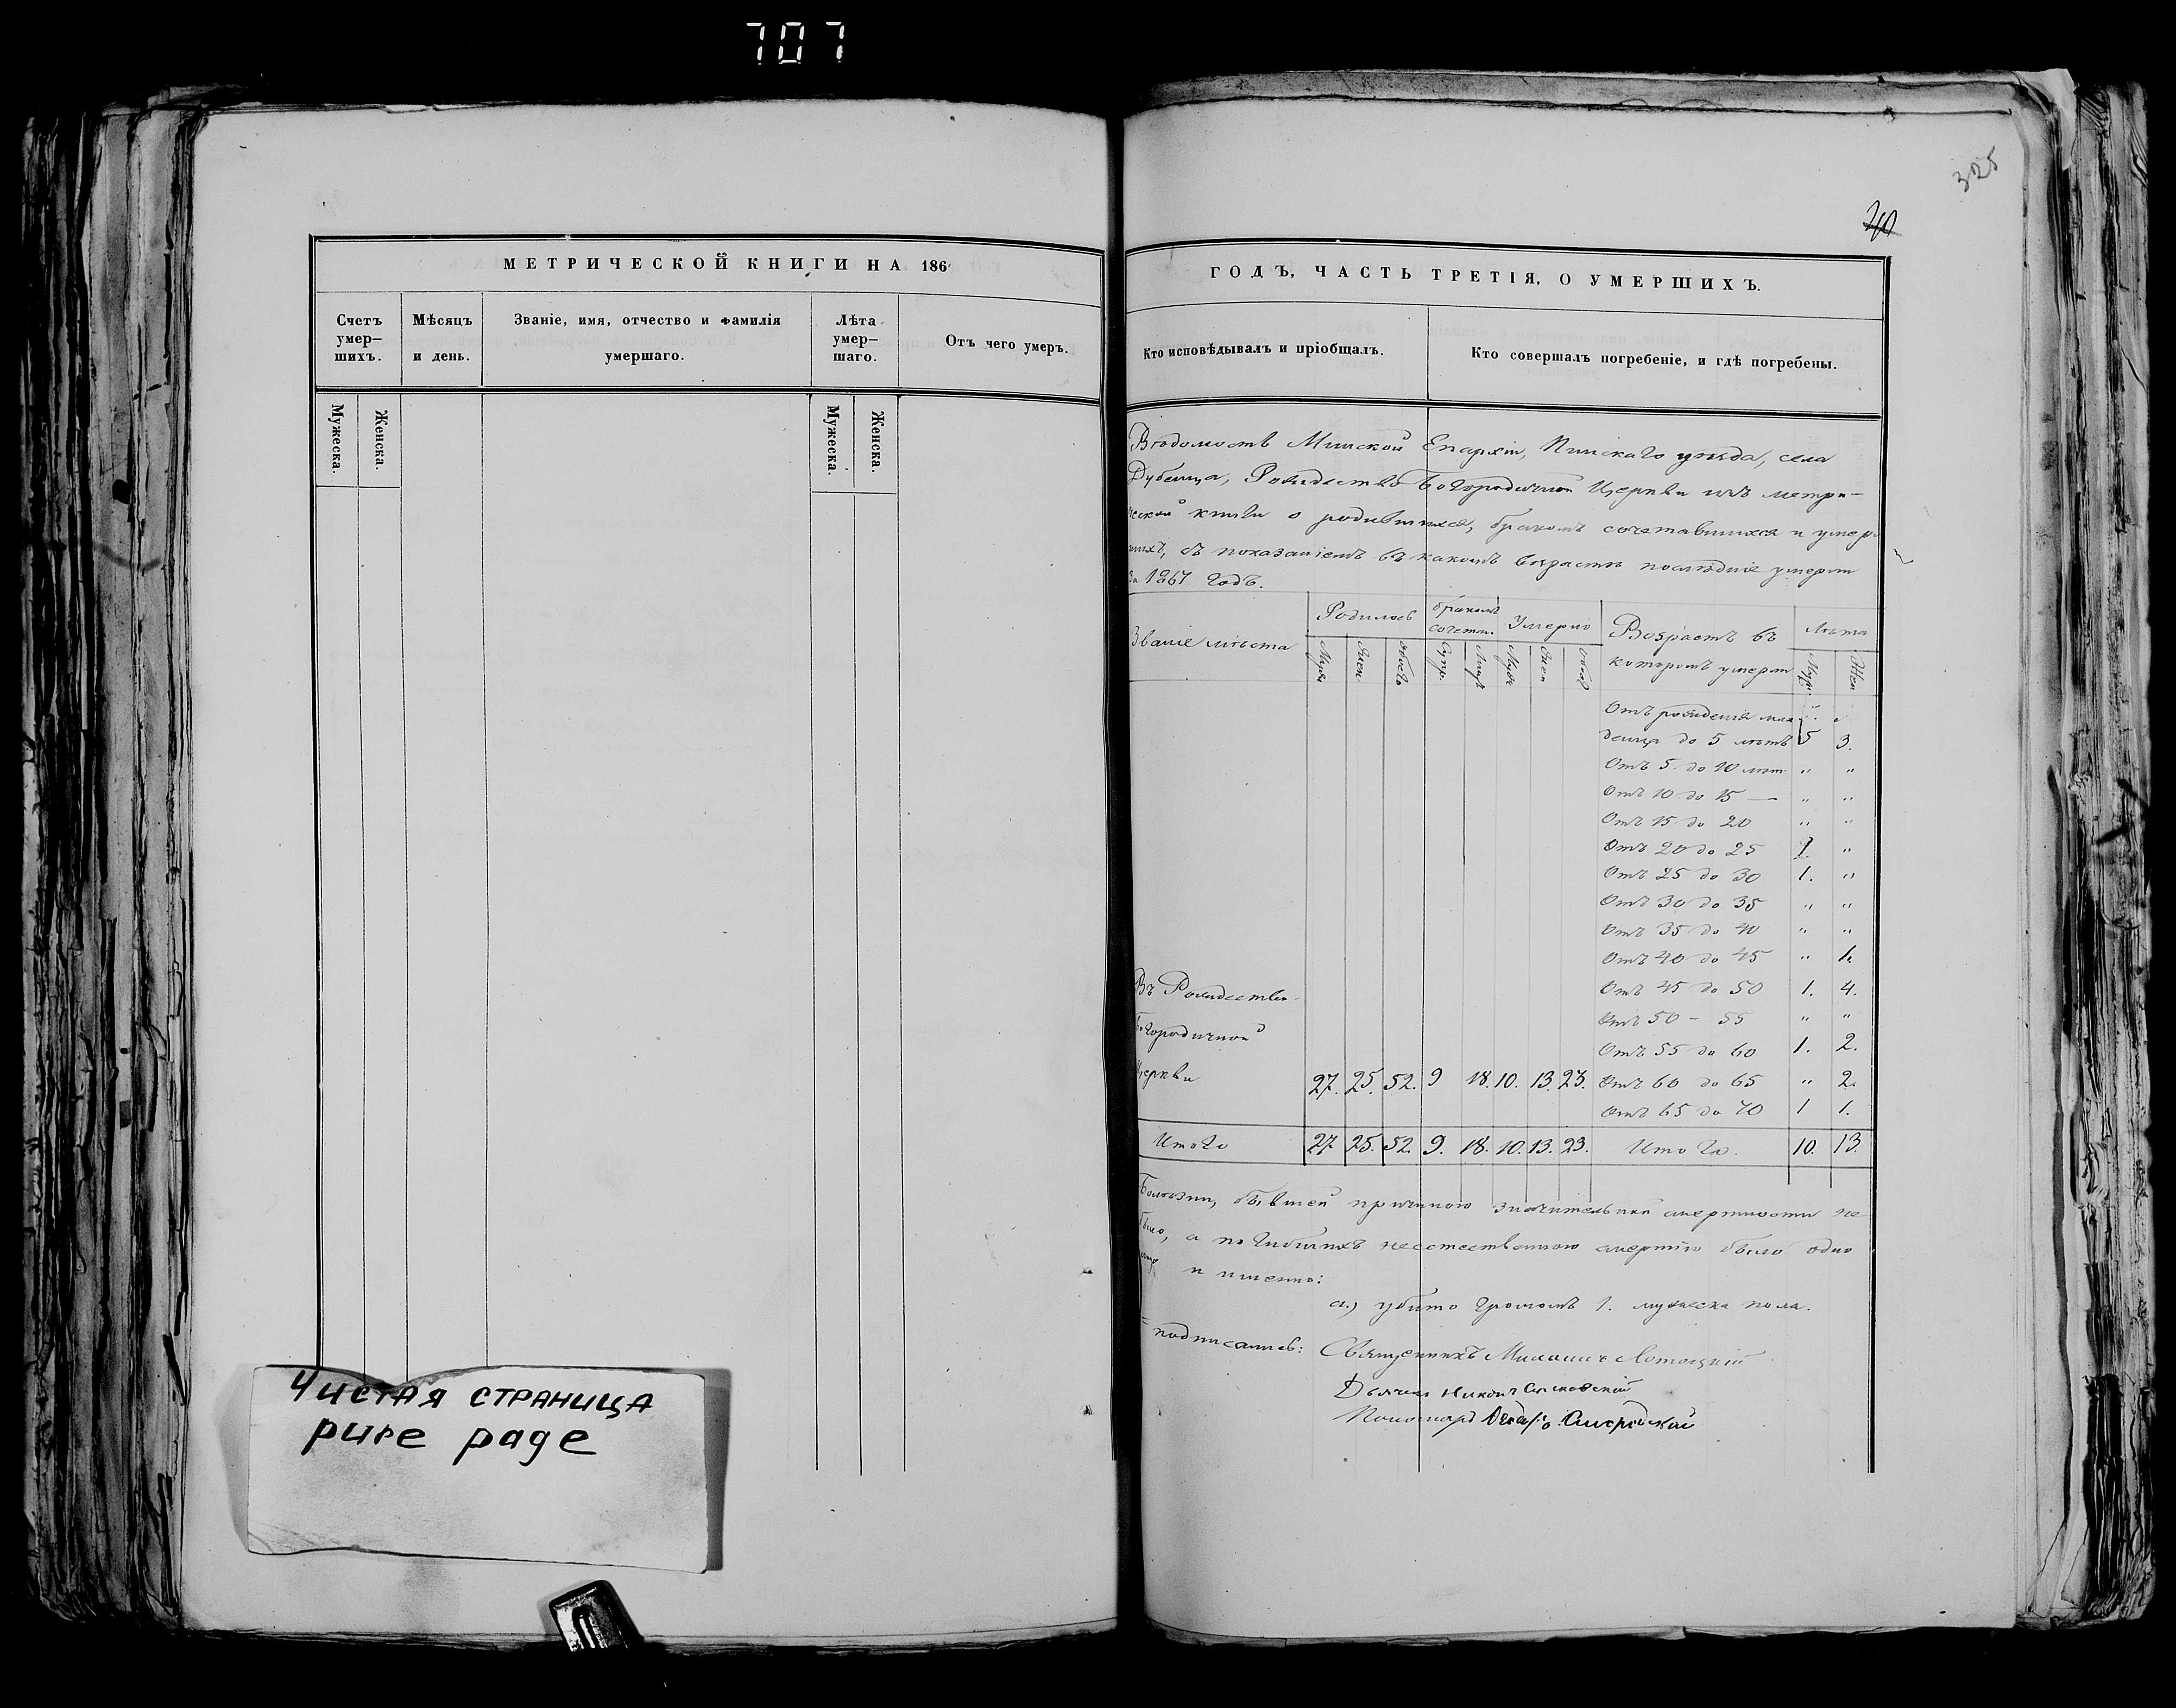 707
МЕТРИЧЕСКОЙ КНИГИ НА 186
Счетъ умер-шихъ.
Мѣсяцъ и день.
Званіе, имя, отчество и фамилія умершаго.
Лѣта умер-шаго.
Отъ чего умеръ.
Мужеска. Женска.
Мужеска. Женска.
Чистая страница
pure page
325
40
ГОДЪ, ЧАСТЬ ТРЕТІЯ, О УМЕРШИХЪ.
Кто исповѣдывалъ и пріобщалъ.
Кто совершалъ погребеніе, и гдѣ погребены.
Вѣдомость Минской Епархіи, Пинскаго уѣзда, села
Дубенца, Рождество Богородичной Церкви изъ метри-
ческой книги о родившихся, бракомъ сочетавшихся и умер-
шихъ, съ показаніемъ въ какомъ возрастѣ послѣдніе умерли
за 1867 годъ.
Званіе мѣста
Родилось
бракомъ сочетал.
Умерло
Возрастъ въ
которомъ умерли
Лѣта
Муж. Жен. обоего Супр. Лицъ Муж Жен обоег Муж. Жен
Отъ рожденія мла " "
денца до 5 лѣтъ 5 3.
Отъ 5 до 10 лѣт. " "
Отъ 10 до 15 — " "
Отъ 15 до 20 " "
Отъ 20 до 25 1. "
Отъ 25 до 30 1. "
Отъ 30 до 35 " "
Отъ 35 до 40 " "
Отъ 40 до 45 " 1.
Въ Рождество- Отъ 45 до 50 1. 4.
Отъ 50 – 55 " "
Богородичной
Отъ 55 до 60 1. 2.
Церкви 27. 25. 52. 9 18. 10. 13. 23. Отъ 60 до 65 " 2.
Отъ 65 до 70 1 1.
Итого 27 25. 52. 9. 18. 10. 13. 23. Итого. 10. 13.
Болѣзни, бывшей причиною значительной смертности не
было, а погибшихъ неестественною смертію было одно
лице и именно:
а.) убито громомъ 1. мужеска пола.
подписались: Священникъ
Дьячекъ Никонъ
Пономарь